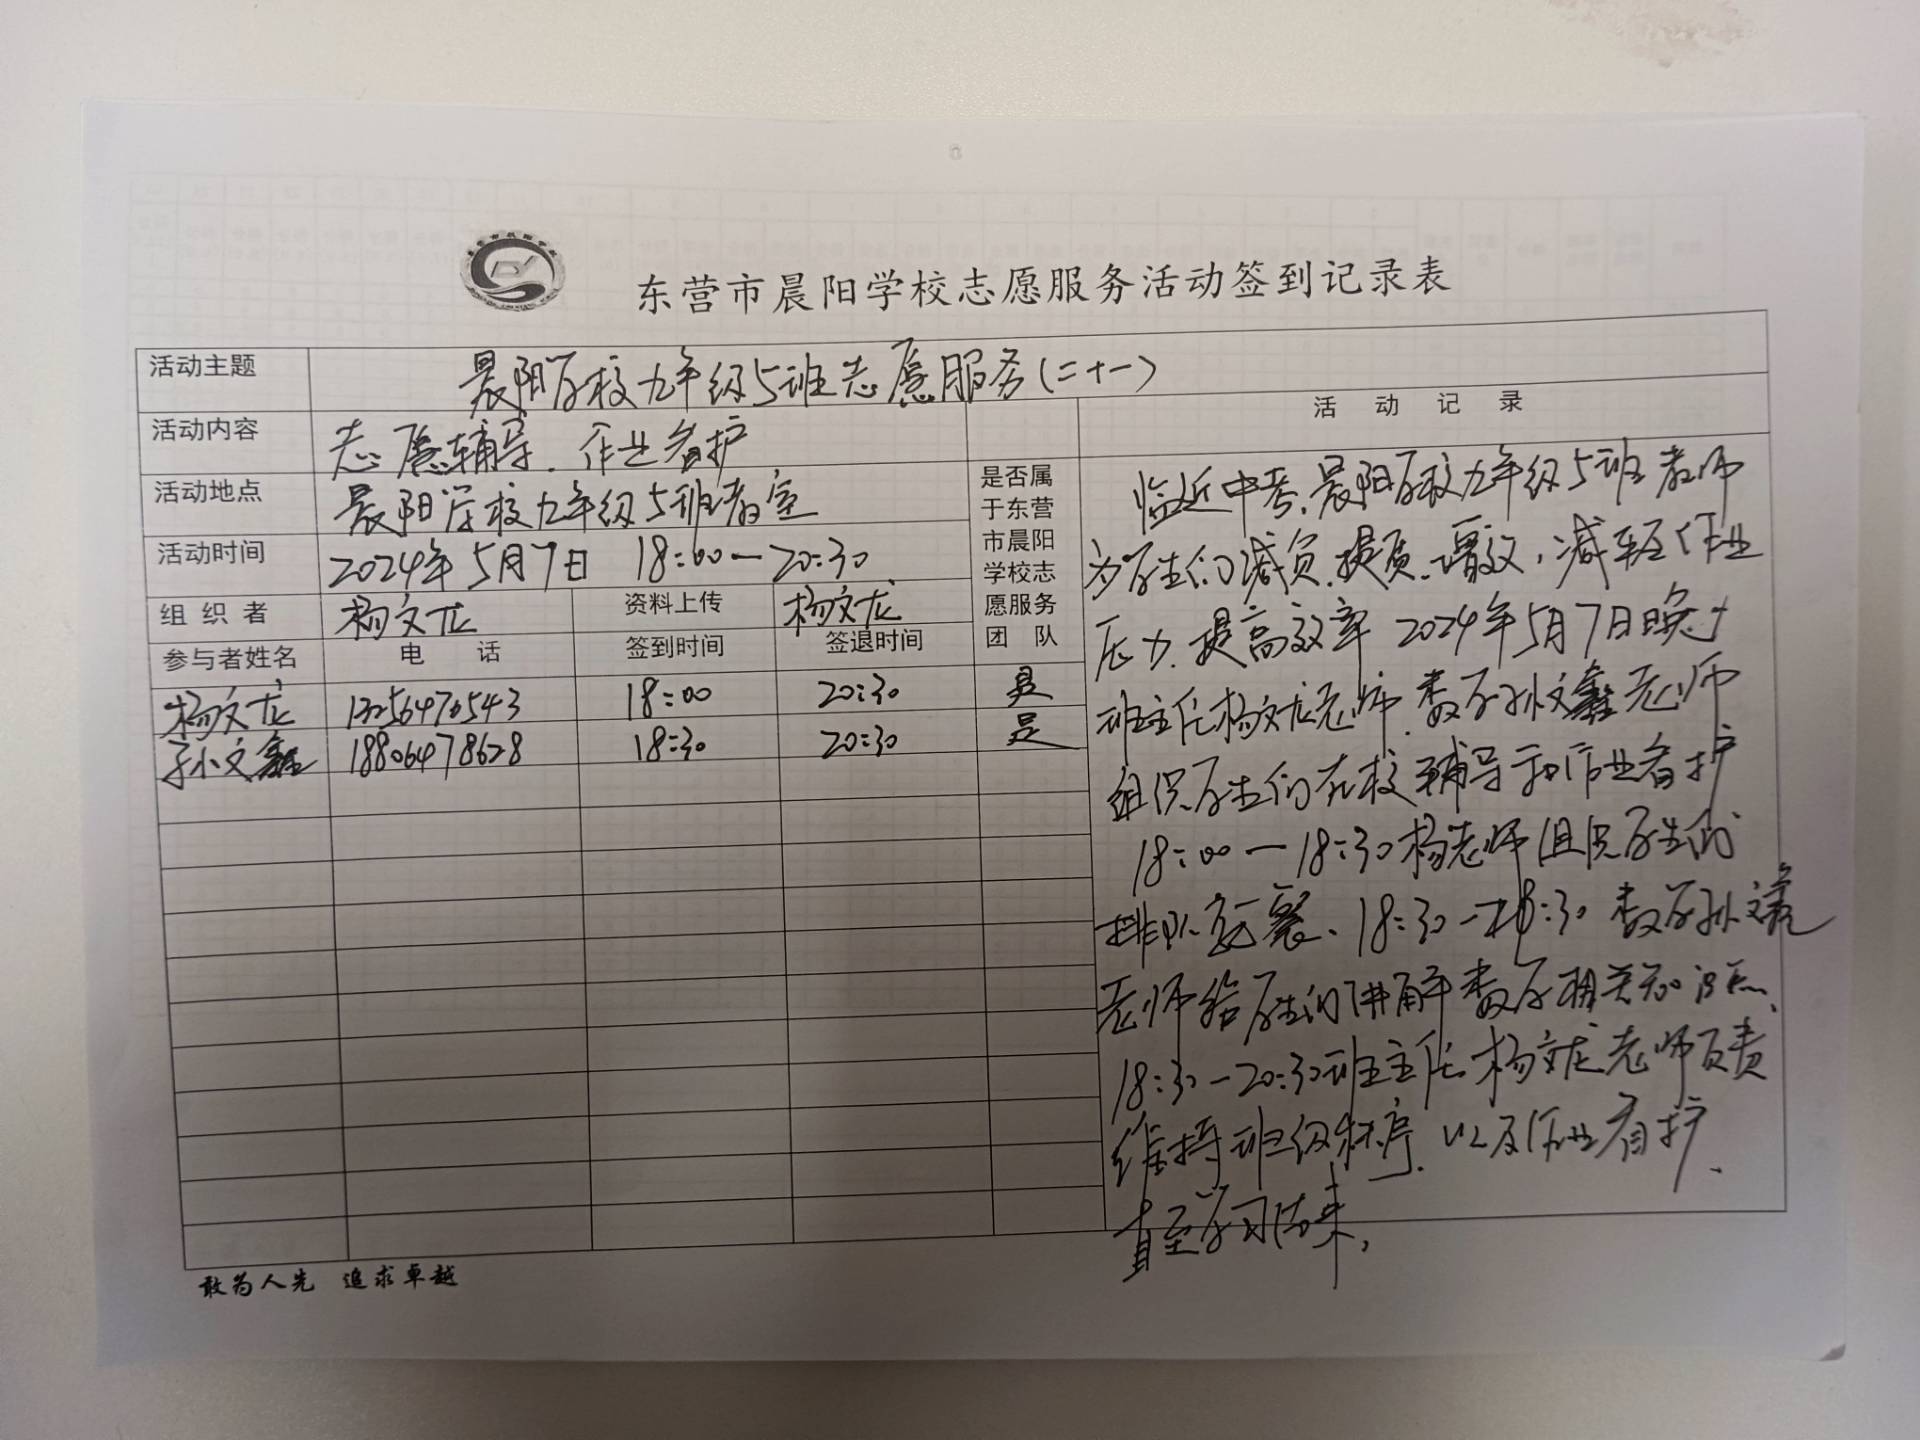 东营市晨阳学校志愿服务活动签到记录表
活动主题 晨阳学校九年级5班志愿服务(二十一)
活动内容 志愿辅导、作业看护
活动地点 晨阳学校九年级5班教室
活动时间 2024年5月7日 18:00—20:30
组织者 杨文龙 资料上传 杨文龙
参与者姓名 电话 签到时间 签退时间
是否属
于东营
市晨阳
学校志
愿服务
团队
杨文龙 13256476543 18:00 20:30 是
孙文鑫 18806478628 18:30 20:30 是
活动记录
临近中考、晨阳学校九年级5班教师
为学生们减负、提质、增效,减轻作业
压力、提高效率 2024年5月7日晚上
班主任杨文龙老师、数学孙文鑫老师
组织学生们在校辅导和作业看护
18:00—18:30杨老师组织学生们
排队就餐、18:30—20:30 数学孙文鑫
老师给学生们讲解数学相关知识点、
18:30—20:30班主任杨文龙老师负责
维持班级秩序、以及作业看护、
直至学习结束,
敢为人先 追求卓越